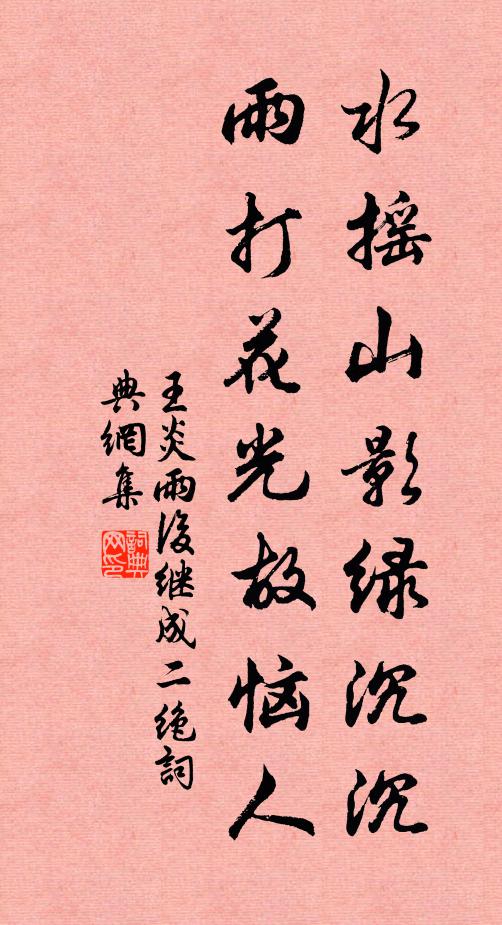 水摇山影绿沉沉
雨打花光故恼人
王炎雨後继成二绝詞
典網集
詞典
网印